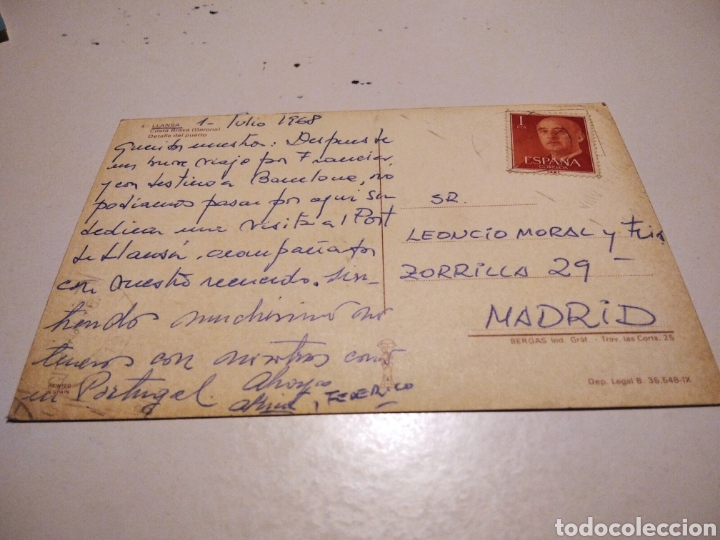 LLANSA
Costa Brava (Gerona)
Detalle del puerto
1 - Julio 1968
Queridos nuestros: Despues de
un breve viaje por Francia,
y con destino a Barcelona, no
podiamos pasar por aqui sin
dedicar una visita al Port
de Llansá, acompañados
con nuestro recuerdo. Sin-
tiendo muchisimo no
teneros con nosotros como
en Portugal. Abrazos
FEDERICO
1
PTS
ESPAÑA
CORREOS
SR.
LEONCIO MORAL y
ZORRILLA 29
MADRID
BERGAS Ind. Gráf. - Trav. las Corts, 25
Dep. Legal B. 36.548-IX
PRINTED
SPAIN
todocoleccion